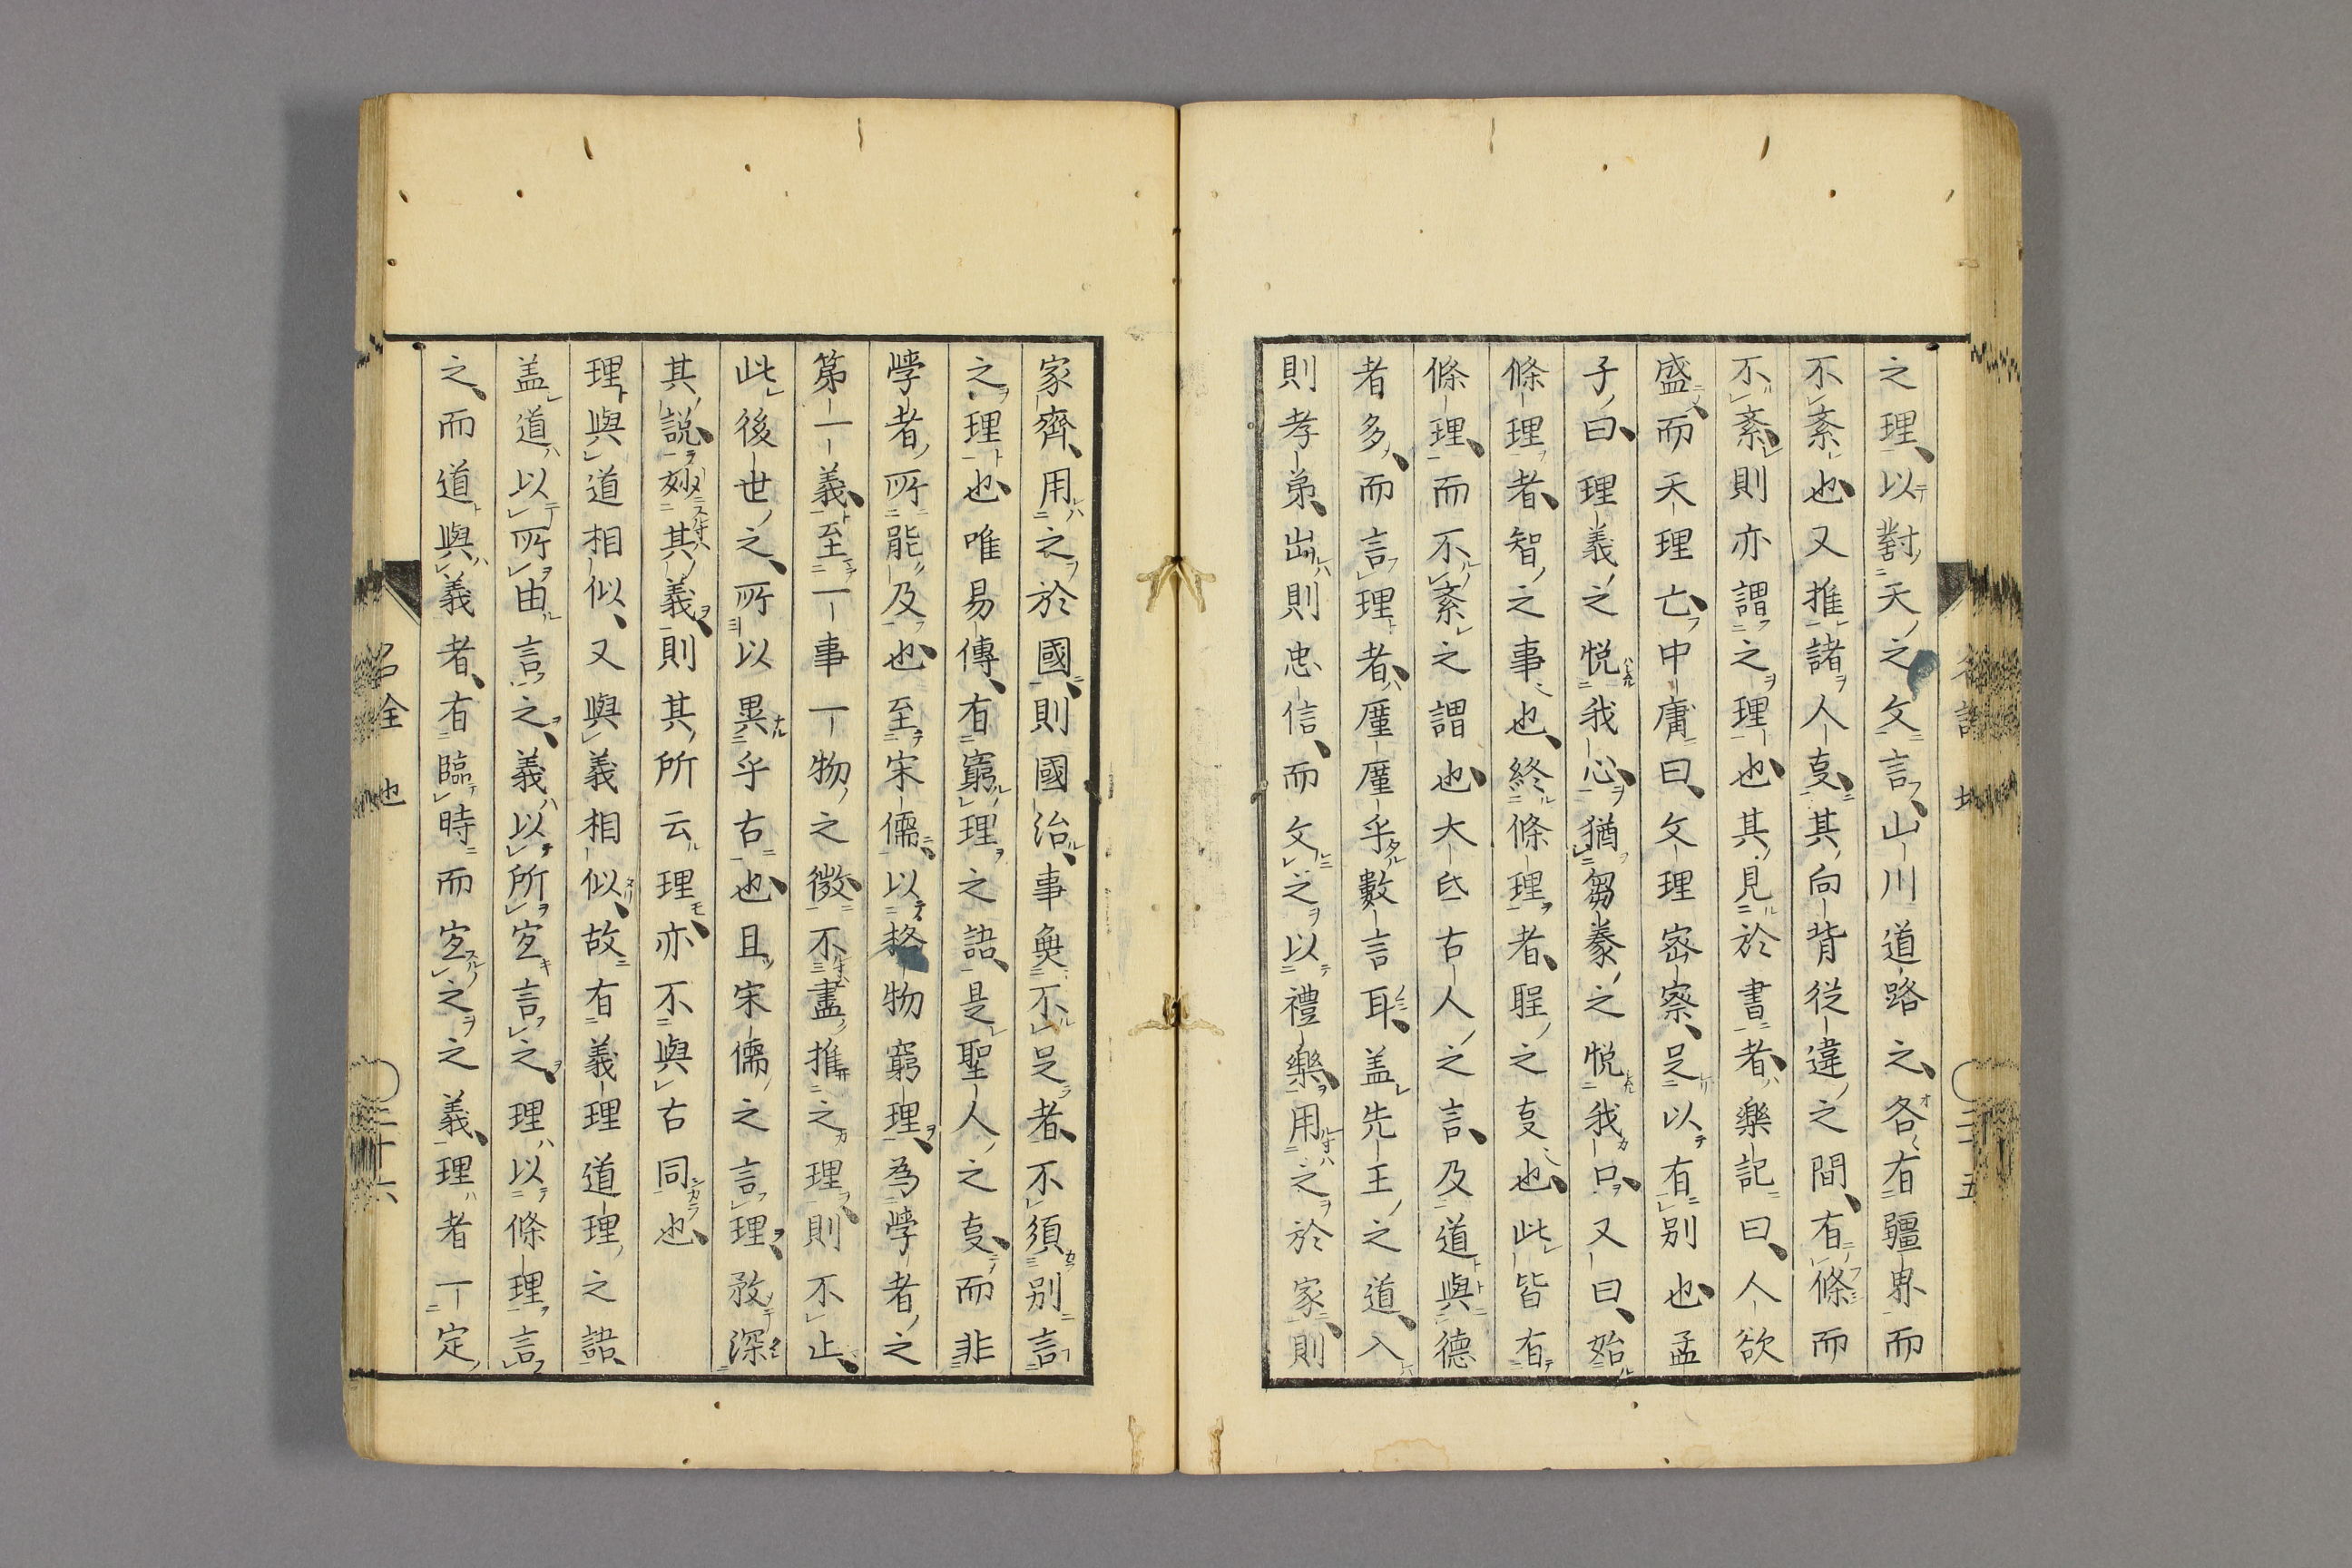 之理以對天之文言山川道路之各有疆界而
不紊也又推諸人叓其向背從違之間有條而
不紊則亦謂之理也其見於書者樂記曰人欲
盛而天理亡中庸曰文理密察足以有别也孟
子曰理義之悦我心猶芻豢之悦我口又曰始
條理者智之事也終條理者聖之叓也此皆有
條理而不紊之謂也大氐古人之言及道與德
者多而言理者廑廑乎數言耳盖先王之道入
則孝弟出則忠信而文之以禮樂用之於家則
家齊用之於國則國治事奐不足者不須别言
之理也唯易傳有窮理之語是聖人之叓而非
學者所能及也至宋儒以格物窮理為學者之
第一義至一事一物之微不盡推之理則不止
此後世之所以異乎古也且宋儒之言理孜深
其説妙其義則其所云理亦不與古同也
理與道相似又與義相似故有義理道理之語
盖道以所由言之義以所定言之理以條理言
之而道與義者有臨時而定之之義理者一定
名詮 地
三十五
三十六